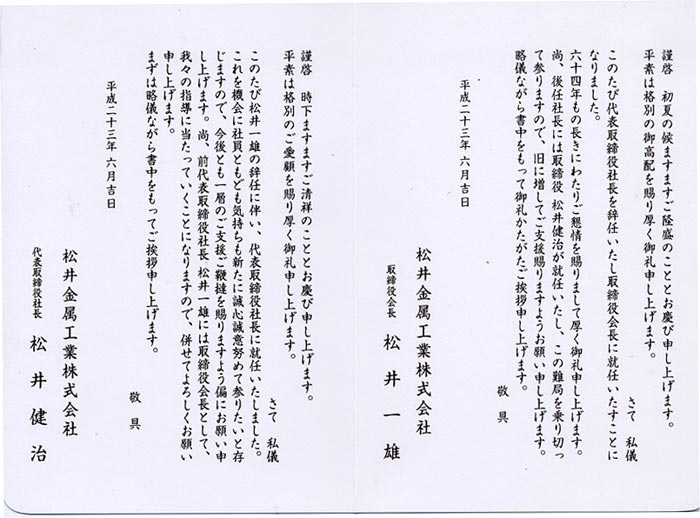 謹啓　初夏の候ますますご隆盛のこととお慶び申し上げます。
平素は格別の御高配を賜り厚く御礼申し上げます。
さて　私儀
このたび代表取締役社長を辞任いたし取締役会長に就任いたすことに
なりました。
六十四年もの長きにわたりご懇情を賜りまして厚く御礼申し上げます。
尚、後任社長には取締役 松井健治が就任いたし、この難局を乗り切っ
て参りますので、旧に増してご支援賜りますようお願い申し上げます。
略儀ながら書中をもって御礼かたがたご挨拶申し上げます。
敬具
平成二十三年 六月吉日
松井金属工業株式会社
取締役会長　松井一雄
謹啓　時下ますますご清祥のこととお慶び申し上げます。
平素は格別のご愛顧を賜り厚く御礼申し上げます。
さて　私儀
このたび松井一雄の辞任に伴い、代表取締役社長に就任いたしました。
これを機会に社員ともども気持ちも新たに誠心誠意努めて参りたいと存
じますので、今後とも一層のご支援ご鞭撻を賜りますよう偏にお願い申
し上げます。尚、前代表取締役社長 松井一雄には取締役会長として、
我々の指導に当たっていくことになりますので、併せてよろしくお願い
申し上げます。
まずは略儀ながら書中をもってご挨拶申し上げます。
敬具
平成二十三年 六月吉日
松井金属工業株式会社
代表取締役社長　松井健治